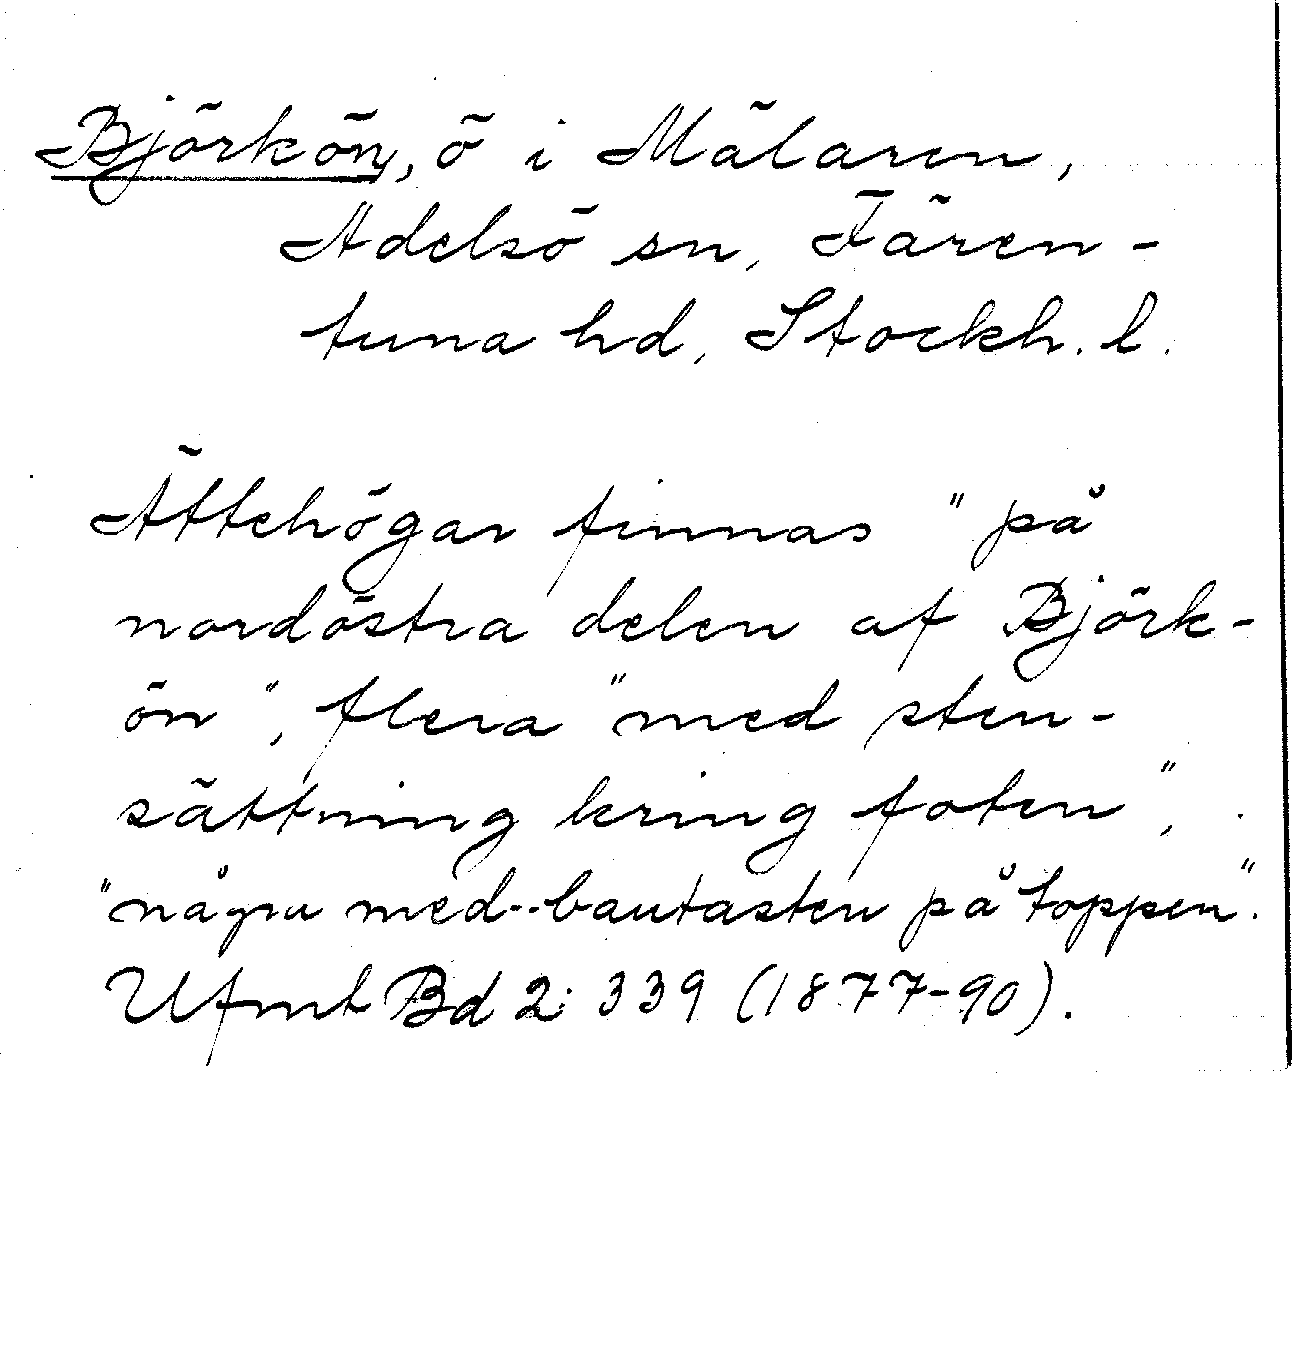 Björkön, ö i Mälaren,
Adelsö sn, Fären-
tuna hd, Stockh. l.
Ättehögar finnas "på
nordöstra delen af Björk-
ön", flera "med sten-
sättning kring foten",
"några med--bautasten på toppen".
Ufmt Bd 2: 339 (1877-90).